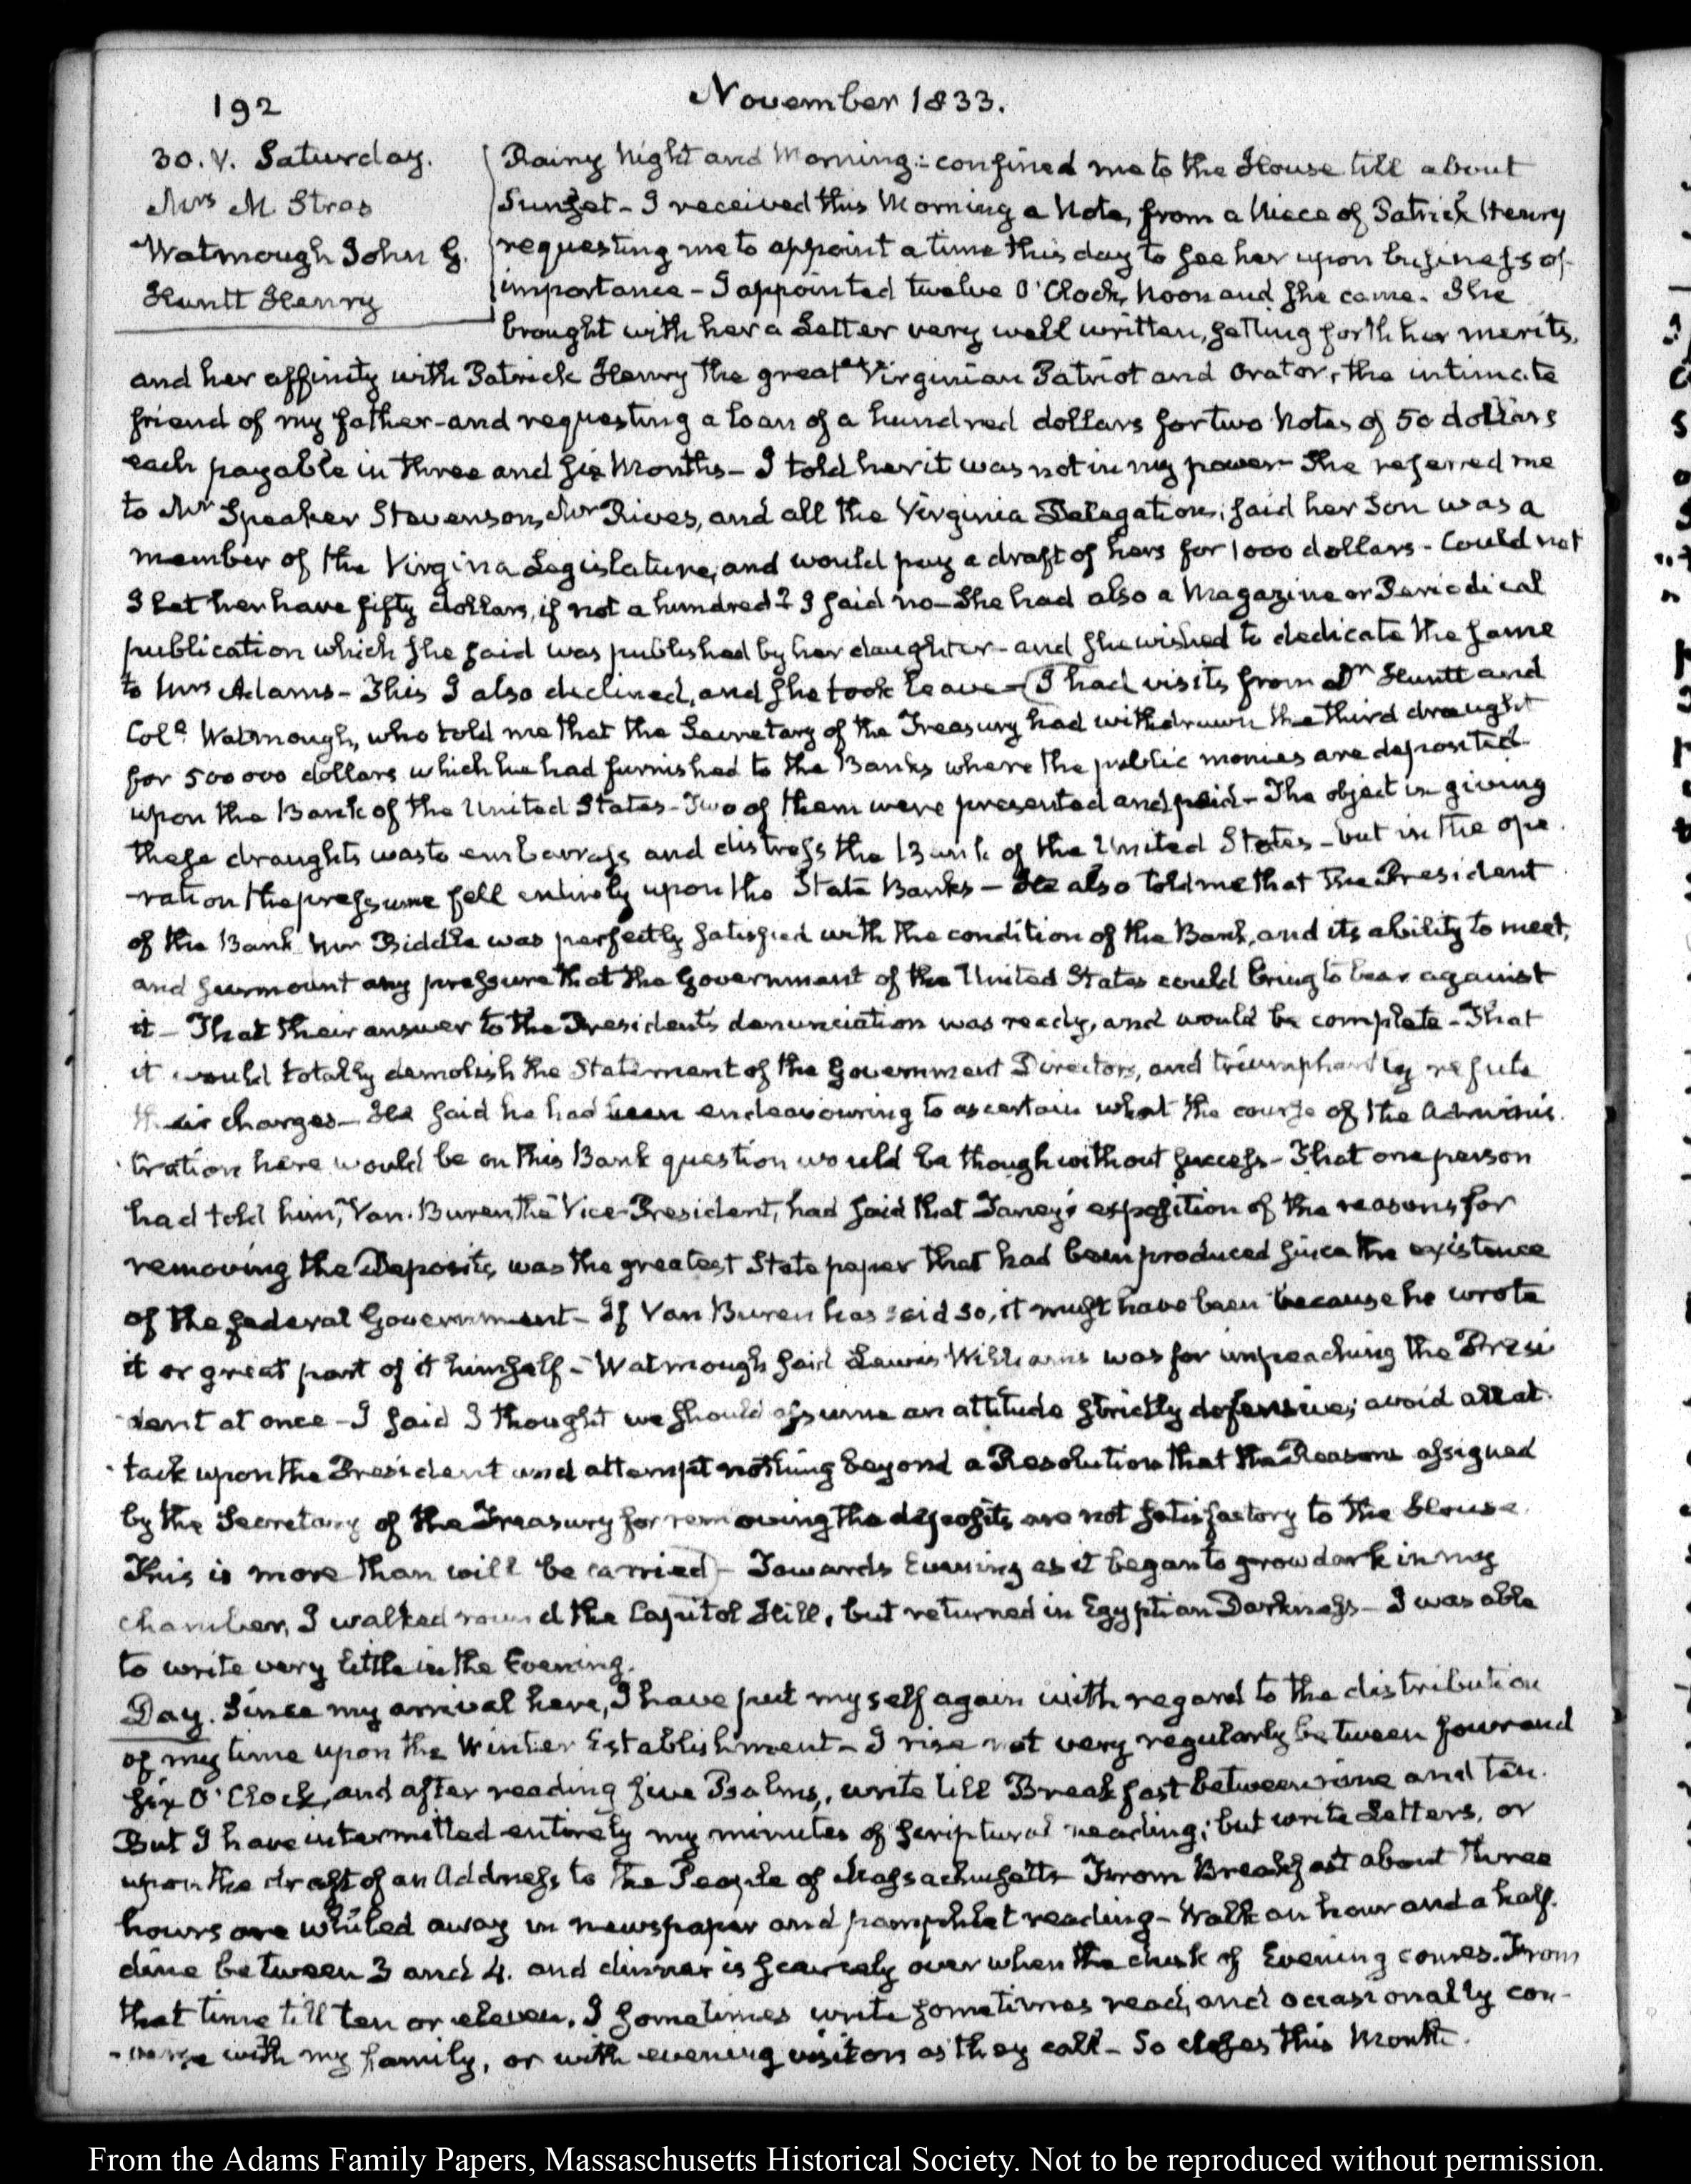 192
November 1833.
30. V. Saturday.
Mrs M. Stras
Watmough John G.
Huntt Henry
Rainy Night and Morning:- confined me to the House till about
Sunset - I received this Morning a Note, from a Niece of Patrick Henry
requesting me to appoint a time this day to see her upon business of
importance - I appointed twelve O'Clock, Noon and she came. She
brought with her a Letter very well written, setting forth her merits,
and her affinity with Patrick Henry the great Virginian Patriot and Orator, the intimate
friend of my father - and requesting a loan of a hundred dollars for two Notes of 50 dollars
each payable in three and six Months - I told her it was not in my power - She referred me
to Mr Speaker Stevenson, Mr Rives, and all the Virginia Delegation; said her Son was a
member of the Virginia Legislature, and would pay a draft of hers for 1000 dollars - Could not
I let her have fifty dollars, if not a hundred? I said no - She had also a Magazine or Periodical
publication which she said was published by her daughter - and she wished to dedicate the same
to Mrs Adams - This I also declined, and she took leave - (I had visits from Dr Huntt and
Coll Watmough, who told me that the Secretary of the Treasury had withdrawn the third draught
for 500000 dollars which he had furnished to the Banks where the public monies are deposited
upon the Bank of the United States - Two of them were presented and paid - The object in giving
these draughts was to embarrass and distress the Bank of the United States - but in the ope
-ration the pressure fell entirely upon the State Banks - He also told me that the President
of the Bank Mr Biddle was perfectly satisfied with the condition of the Bank, and its ability to meet,
and surmount any pressure that the Government of the United States could bring to bear against
it - That their answer to the President's denunciation was ready, and would be complete - That
it would totally demolish the Statement of the Government Directors, and triumphantly refute
their charges - He said he had been endeavouring to ascertain what the course of the Adminis.
tration here would be on this Bank question would be though without success - That one person
had told him, Van Buren, the Vice-President, had said that Taney's exposition of the reasons for
removing the Deposits, was the greatest State paper that had been produced since the existence
of the federal Government - If Van Buren has said so, it must have been because he wrote
it or great part of it himself - Watmough said Lewis Williams was for impeaching the Presi
dent at once - I said I thought we should assume an attitude strictly defensive; avoid all at-
tack upon the President and attempt nothing beyond a Resolution that the Reasons assigned
by the Secretary of the Treasury for removing the deposits are not satisfactory to the House.
This is more than will be carried) - Towards Evening as it began to grow dark in my
chamber, I walked round the Capitol Hill, but returned in Egyptian Darkness - I was able
to write very little in the Evening.
Day. Since my arrival here, I have put myself again with regard to the distribution
of my time upon the Winter Establishment - I rise not very regularly between four and
six O'Clock, and after reading five Psalms, write till Breakfast between nine and ten.
But I have intermitted entirely my minutes of scriptural reading; but write Letters, or
upon the draft of an Address to the People of Massachusetts - From Breakfast about three
hours are whiled away in newspaper and pamphlet reading - Walk an hour and a half.
dine between 3 and 4. and dinner is scarcely over when the dusk of Evening comes. From
that time till ten or eleven, I sometimes write sometimes read, and occasionally con-
-verse with my family, or with evening visitors as they call - So closes this Month.
From the Adams Family Papers, Massaschusetts Historical Society. Not to be reproduced without permission.